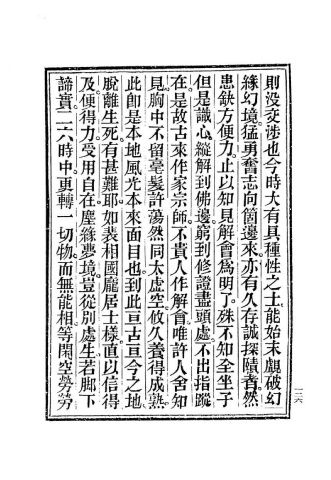 則没交涉也今時大有具種性之士能始末覷破幻
緣幻境猛勇奮志向箇邊來亦有久存誠探賾者然
患缺方便力止以知見解會為明了殊不知全坐子
但是識心縱解到佛邊窮到修證盡頭處不出指蹤
在是故古來作家宗師不貴人作解會唯許人舍知
見胸中不留毫髮許蕩然同太虛空攸久養得成熟
此卽是本地風光本來面目也到此亘古亘今之地
脫離生死有甚難耶如裴相國龐居士樣直以信得
及便得力受用自在塵緣夢境豈從別處生若脚下
諦實二六時中更轉一切物而無能相等閑空勞勞
一二六